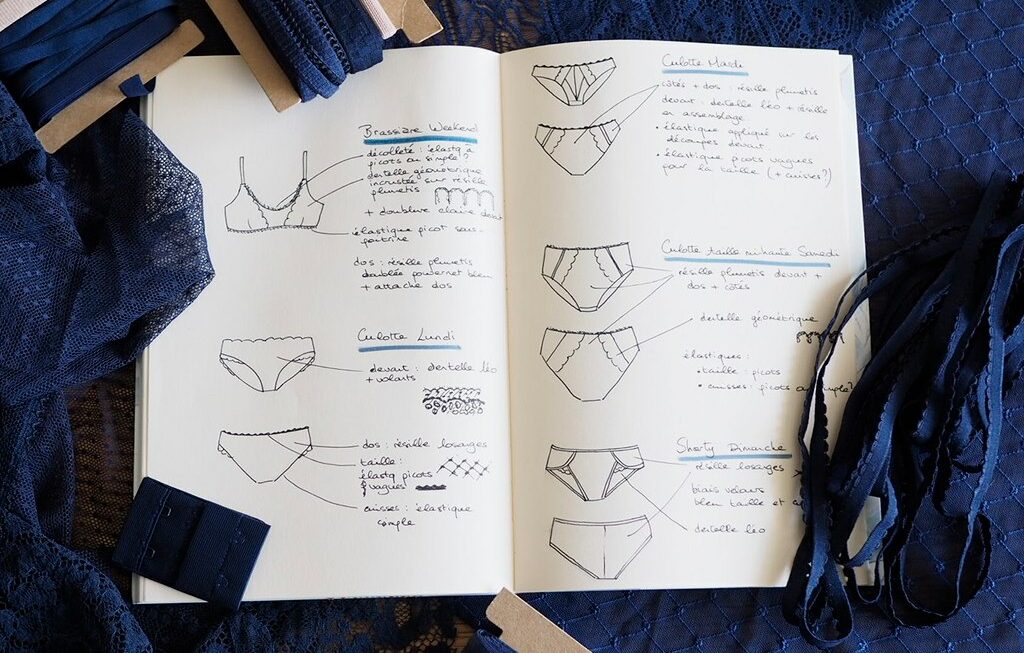 Brassière Weekend
décolleté : élastq à
picots ou simple ?
dentelle géométrique
incrustée sur résille
plumetis
+ doublure claire devant
élastique picot sous-
poitrine
dos : résille plumetis
doublée powernet bleu
+ attache dos
Culotte Lundi
devant : dentelle léo
+ volants
dos : résille losanges
taille :
élastq picots
vagues
cuisses : élastique
simple
Culotte Mardi
côtés + dos : résille plumetis
devant : dentelle léo + résille
en assemblage
• élastique appliqué sur les
découpes devant
• élastique picots vagues
pour la taille (+ cuisses ?)
Culotte taille mi-haute Samedi
résille plumetis devant +
dos + côtés
dentelle géométrique
élastiques :
• taille : picots
• cuisses : picots ou simple ?
Shorty Dimanche
résille losanges
biais velours
bleu taille et
dentelle léo